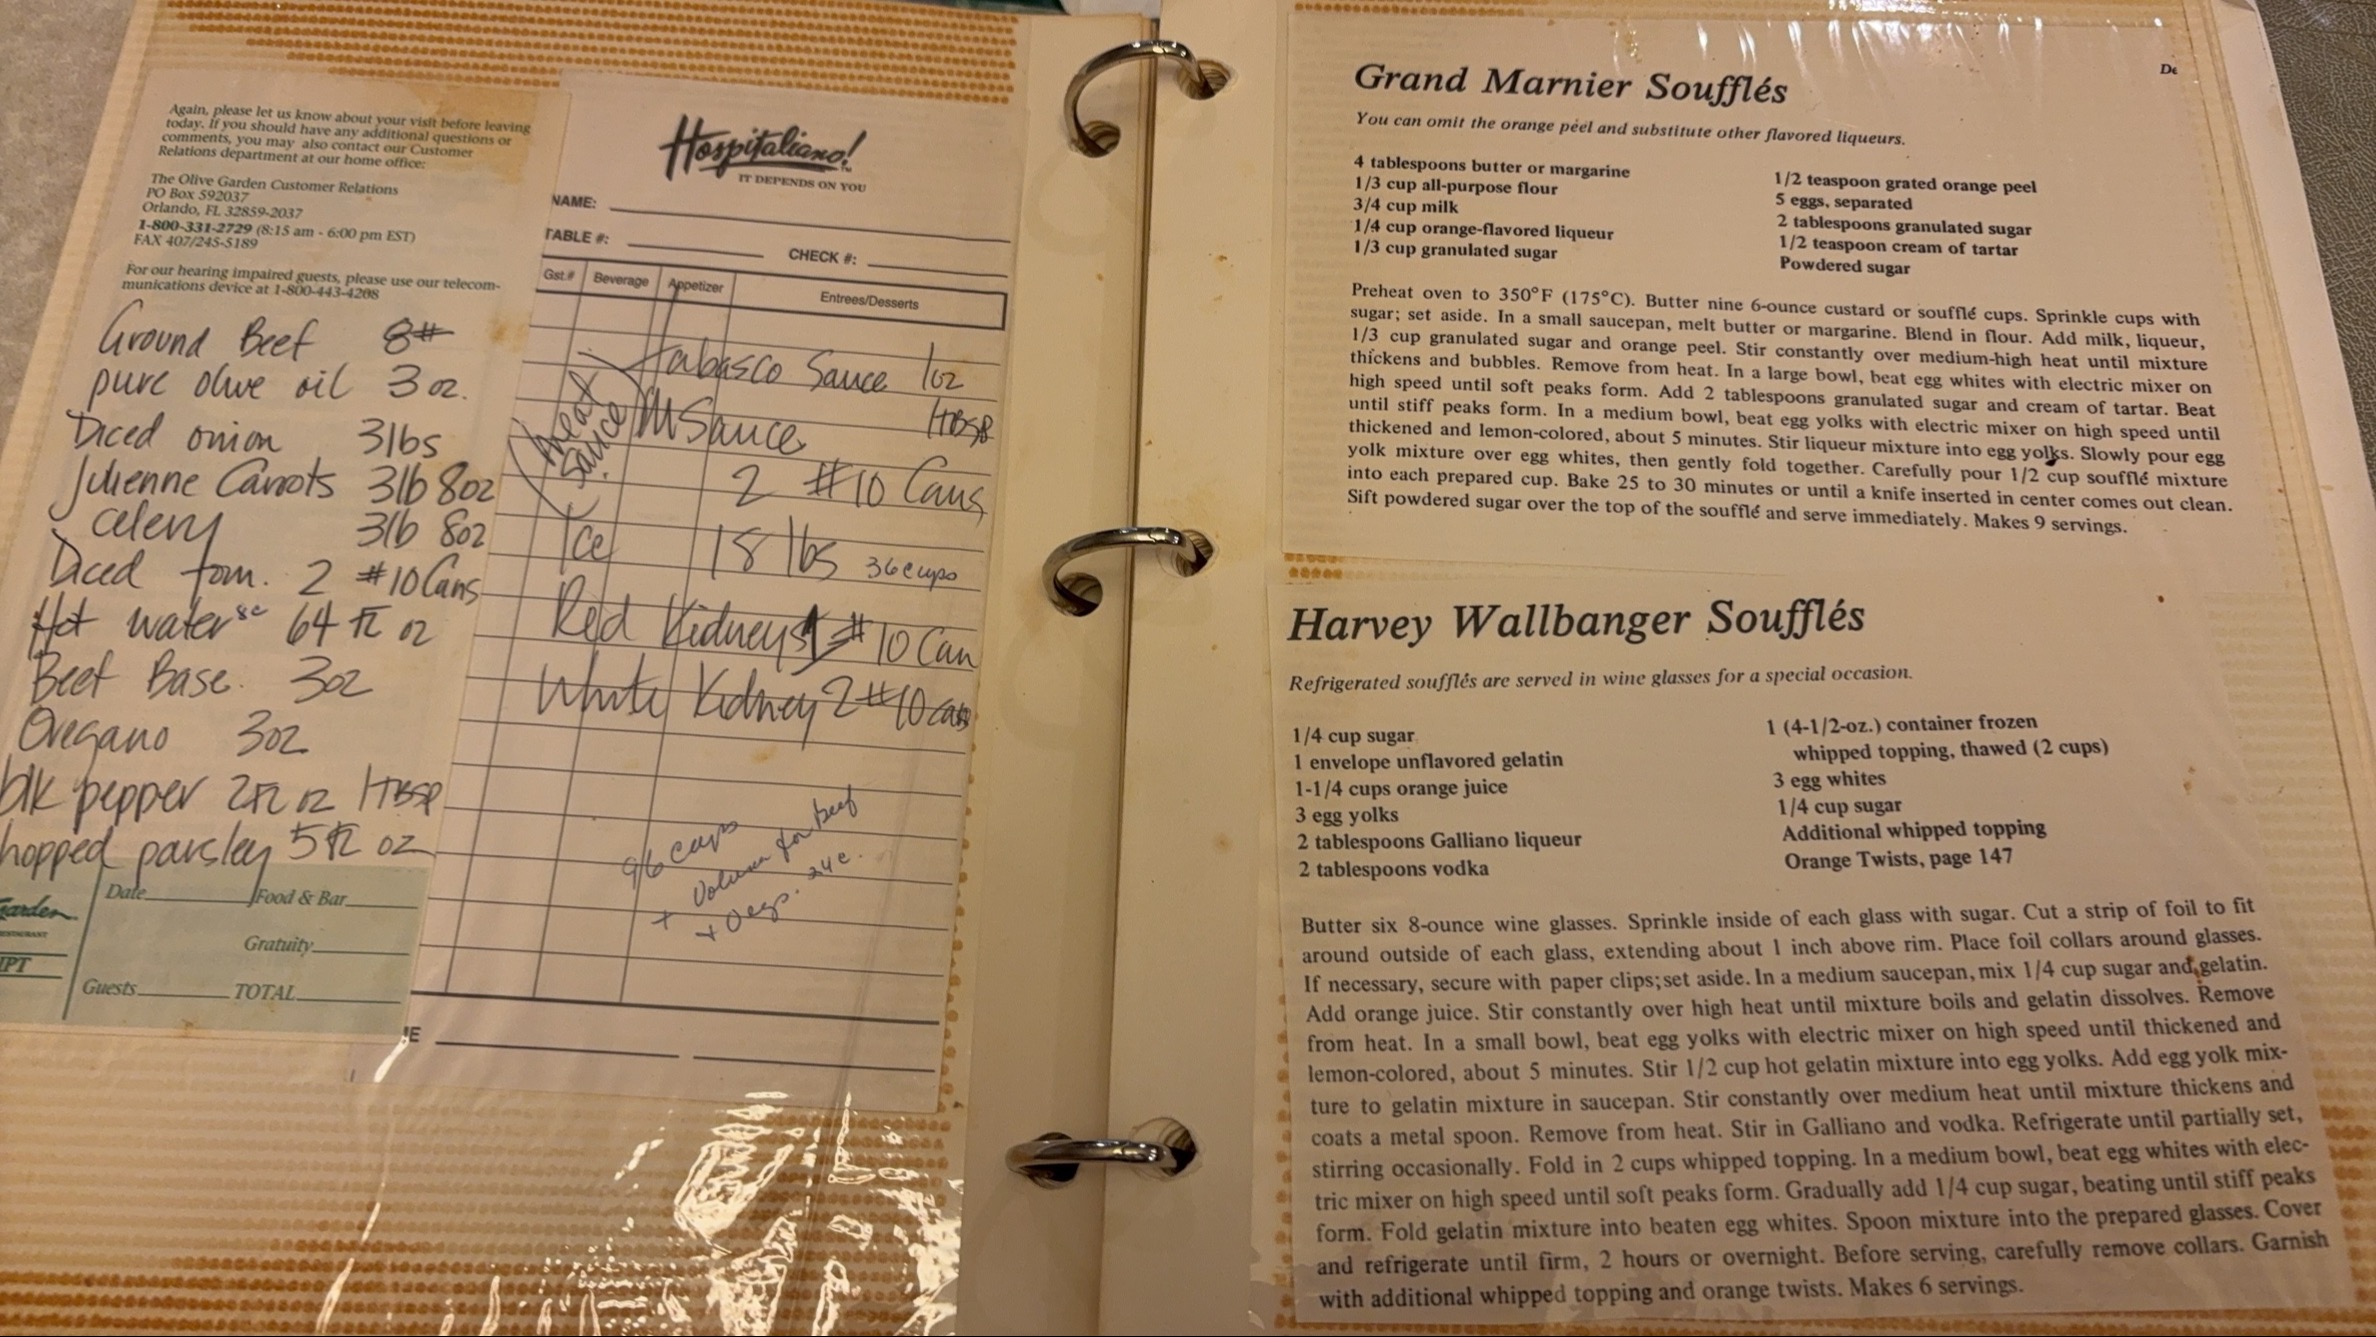 Again, please let us know about your visit before leaving
today. If you should have any additional questions or
comments, you may also contact our Customer
Relations department at our home office:
The Olive Garden Customer Relations
PO Box 592037
Orlando, FL 32859-2037
1-800-331-2729 (8:15 am - 6:00 pm EST)
FAX 407/245-5189
For our hearing impaired guests, please use our telecom-
munications device at 1-800-443-4208
Ground Beef 8#
pure olive oil 3 oz.
Diced onion 3lbs
Julienne Carrots 3lb 8oz
celery 3lb 8oz
Diced tom. 2 #10 Cans
Hot water 8c 64 fl oz
Beef Base. 3oz
Oregano 3oz
blk pepper 2 fl oz 1 TBSP
hopped parsley 5 fl oz
Garden
RESTAURANT
IPT
Date
Food & Bar
Gratuity
Guests
TOTAL
Hospitaliano!
TM
IT DEPENDS ON YOU
NAME:
TABLE #:
CHECK #:
Gst.#
Beverage
Appetizer
Entrees/Desserts
tabasco Sauce 1oz
1TBSP
(meat
sauce)
M Sauce
2 #10 Cans
Ice 18 lbs 36 cups
Red Kidneys 1 #10 Can
White Kidney 2 #10 cans
96 cups
+ Volume for beef
+ 24c.
E
De
Grand Marnier Soufflés
You can omit the orange peel and substitute other flavored liqueurs.
4 tablespoons butter or margarine
1/3 cup all-purpose flour
3/4 cup milk
1/4 cup orange-flavored liqueur
1/3 cup granulated sugar
1/2 teaspoon grated orange peel
5 eggs, separated
2 tablespoons granulated sugar
1/2 teaspoon cream of tartar
Powdered sugar
Preheat oven to 350°F (175°C). Butter nine 6-ounce custard or soufflé cups. Sprinkle cups with
sugar; set aside. In a small saucepan, melt butter or margarine. Blend in flour. Add milk, liqueur,
1/3 cup granulated sugar and orange peel. Stir constantly over medium-high heat until mixture
thickens and bubbles. Remove from heat. In a large bowl, beat egg whites with electric mixer on
high speed until soft peaks form. Add 2 tablespoons granulated sugar and cream of tartar. Beat
until stiff peaks form. In a medium bowl, beat egg yolks with electric mixer on high speed until
thickened and lemon-colored, about 5 minutes. Stir liqueur mixture into egg yolks. Slowly pour egg
yolk mixture over egg whites, then gently fold together. Carefully pour 1/2 cup soufflé mixture
into each prepared cup. Bake 25 to 30 minutes or until a knife inserted in center comes out clean.
Sift powdered sugar over the top of the soufflé and serve immediately. Makes 9 servings.
Harvey Wallbanger Soufflés
Refrigerated soufflés are served in wine glasses for a special occasion.
1/4 cup sugar
1 envelope unflavored gelatin
1-1/4 cups orange juice
3 egg yolks
2 tablespoons Galliano liqueur
2 tablespoons vodka
1 (4-1/2-oz.) container frozen
whipped topping, thawed (2 cups)
3 egg whites
1/4 cup sugar
Additional whipped topping
Orange Twists, page 147
Butter six 8-ounce wine glasses. Sprinkle inside of each glass with sugar. Cut a strip of foil to fit
around outside of each glass, extending about 1 inch above rim. Place foil collars around glasses.
If necessary, secure with paper clips; set aside. In a medium saucepan, mix 1/4 cup sugar and gelatin.
Add orange juice. Stir constantly over high heat until mixture boils and gelatin dissolves. Remove
from heat. In a small bowl, beat egg yolks with electric mixer on high speed until thickened and
lemon-colored, about 5 minutes. Stir 1/2 cup hot gelatin mixture into egg yolks. Add egg yolk mix-
ture to gelatin mixture in saucepan. Stir constantly over medium heat until mixture thickens and
coats a metal spoon. Remove from heat. Stir in Galliano and vodka. Refrigerate until partially set,
stirring occasionally. Fold in 2 cups whipped topping. In a medium bowl, beat egg whites with elec-
tric mixer on high speed until soft peaks form. Gradually add 1/4 cup sugar, beating until stiff peaks
form. Fold gelatin mixture into beaten egg whites. Spoon mixture into the prepared glasses. Cover
and refrigerate until firm, 2 hours or overnight. Before serving, carefully remove collars. Garnish
with additional whipped topping and orange twists. Makes 6 servings.